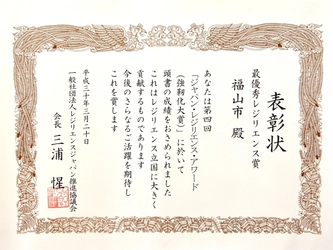 表彰状
最優秀レジリエンス賞
福山市 殿
あなたは第四回
「ジャパン・レジリエンス・アワード
(強靭化大賞)」に於いて
頭書の成績をおさめられました
これはレジリエンス立国に大きく
貢献するものであり
今後のさらなるご活躍を期待し
これを賞します
平成三十年三月二十日
一般社団法人レジリエンスジャパン推進協議会
会長 三浦 惺